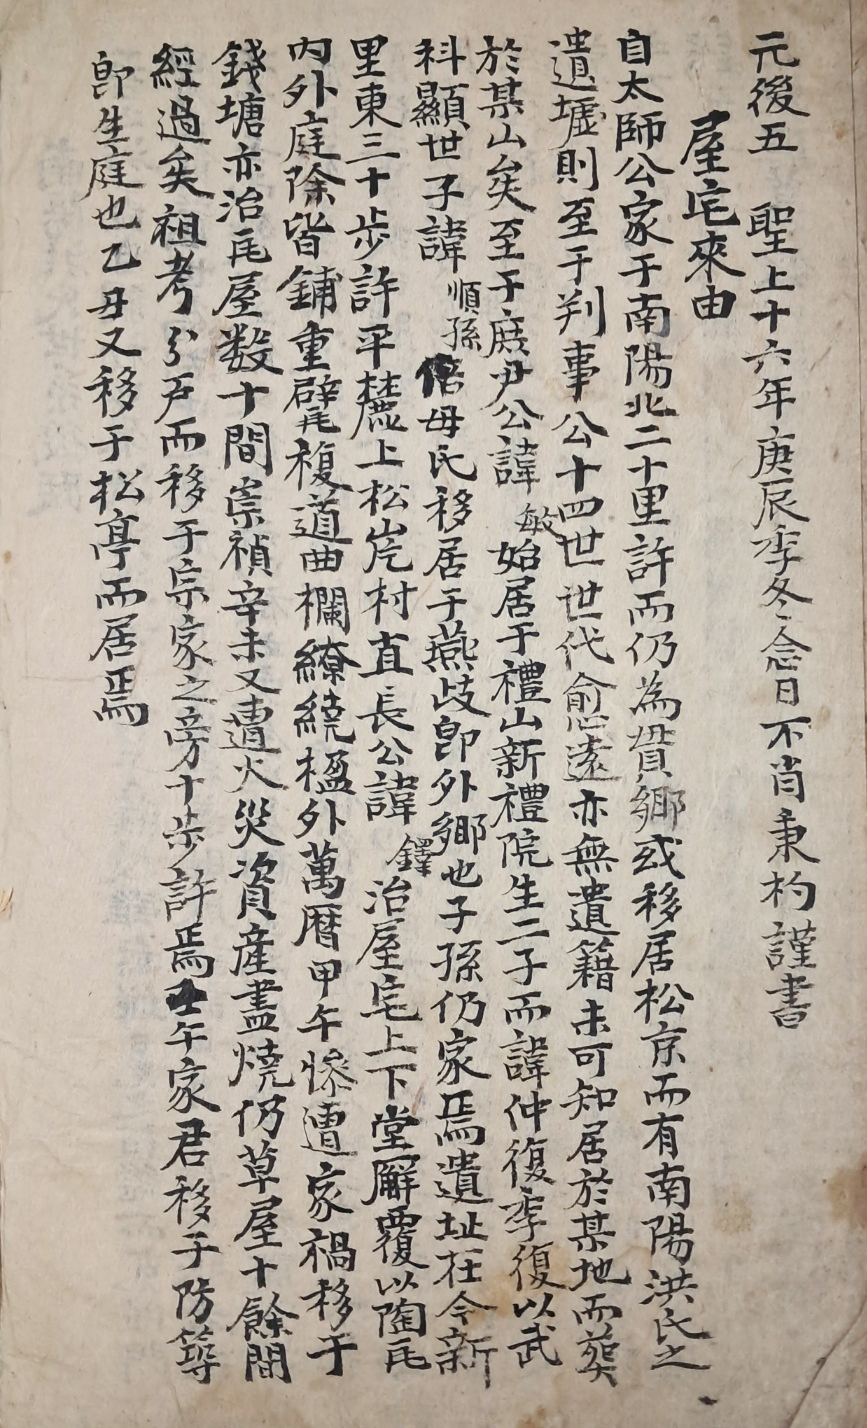 元後五 聖上十六年庚辰季冬念日不肖秉杓謹書
屋宅來由
自太師公家于南陽北二十里許而仍為貫鄉或移居松京而有南陽洪氏之
遺墟則至于判事公十四世世代愈遠亦無遺籍未可知居於某地而葬
於某山矣至于庶尹公諱敏始居于禮山新禮院生二子而諱仲復季復以武
科顯世子諱順孫偕母氏移居于燕歧卽外鄉也子孫仍家焉遺址在今新
里東三十步許平麓上松崖村直長公諱鐸治屋宅上下堂廨覆以陶瓦
內外庭除皆鋪重甓複道曲欄繚繞楹外萬曆甲午慘遭家禍移于
錢塘亦治瓦屋数十間崇禎辛未又遭火災資產盡燒仍草屋十餘間
經過矣祖考分戶而移于宗家之旁十步許焉壬午家君移于防築
卽生庭也乙丑又移于松亭而居焉